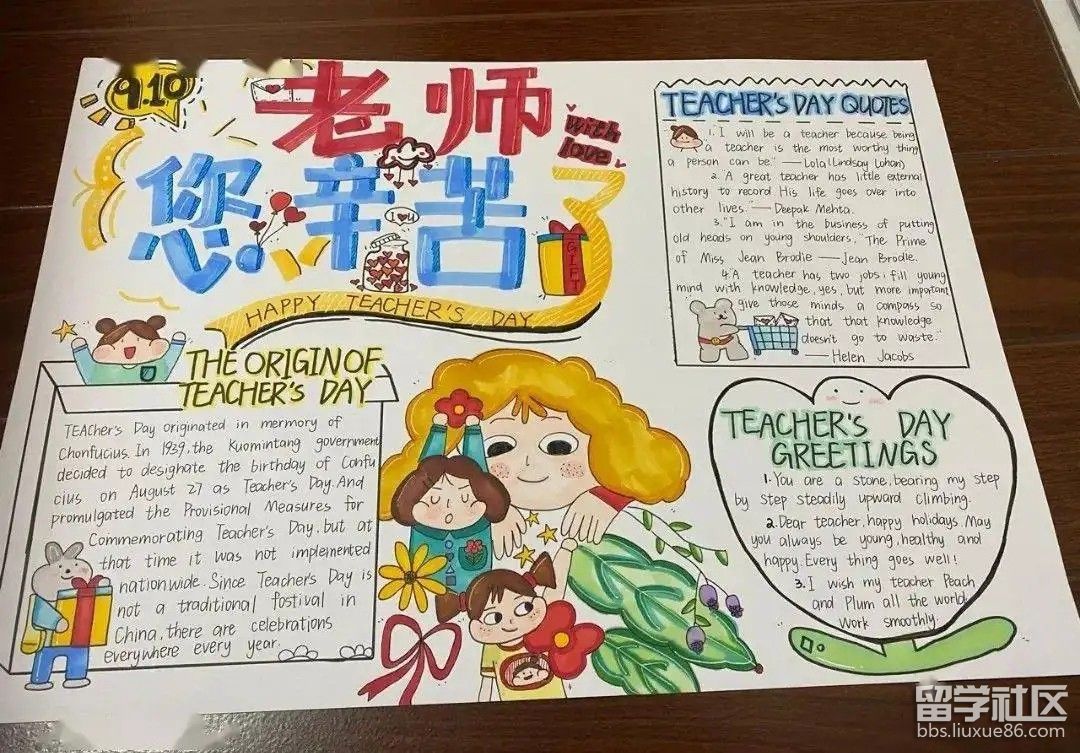 9.10
老师
with
love
您辛苦了
I U
GIFT
HAPPY TEACHER'S DAY
TEACHER'S DAY QUOTES
1. I will be a teacher because being
a teacher is the most worthy thing
a person can be." —Lola (Lindsay Lohan)
2. A great teacher has little external
history to record His life goes over into
other lives." — Deepak Mehta.
3. "I am in the business of putting
old heads on young shoulders, "The Prime
of Miss Jean Brodie — Jean Brodie.
4. A teacher has two jobs; fill young
mind with knowledge, yes, but more important
give those minds a compass so
that that knowledge
doesn't go to waste."
— Helen Jacobs
THE ORIGIN OF
TEACHER'S DAY
TEACher's Day originated in mermory of
Chonfucius. In 1939, the Kuomintang government
decided to designate the birthday of Confu
cius on August 27 as Teacher's Day. And
promulgated the Provisional Measures for
Commemorating Teacher's Day, but at
that time it was not implemented
nationwide. Since Teacher's Day is
not a traditional fostival in
China, there are celebrations
everywhere every year.
TEACHER'S DAY
GREETINGS
1. You are a stone, bearing my step
by step steadily upward climbing.
2. Dear teacher, happy holidays. May
you always be young, healthy and
happy. Every thing goes well!
3. I wish my teacher Peach
and Plum all the world,
work smoothly.
留学社区
bbs.liuxue86.com